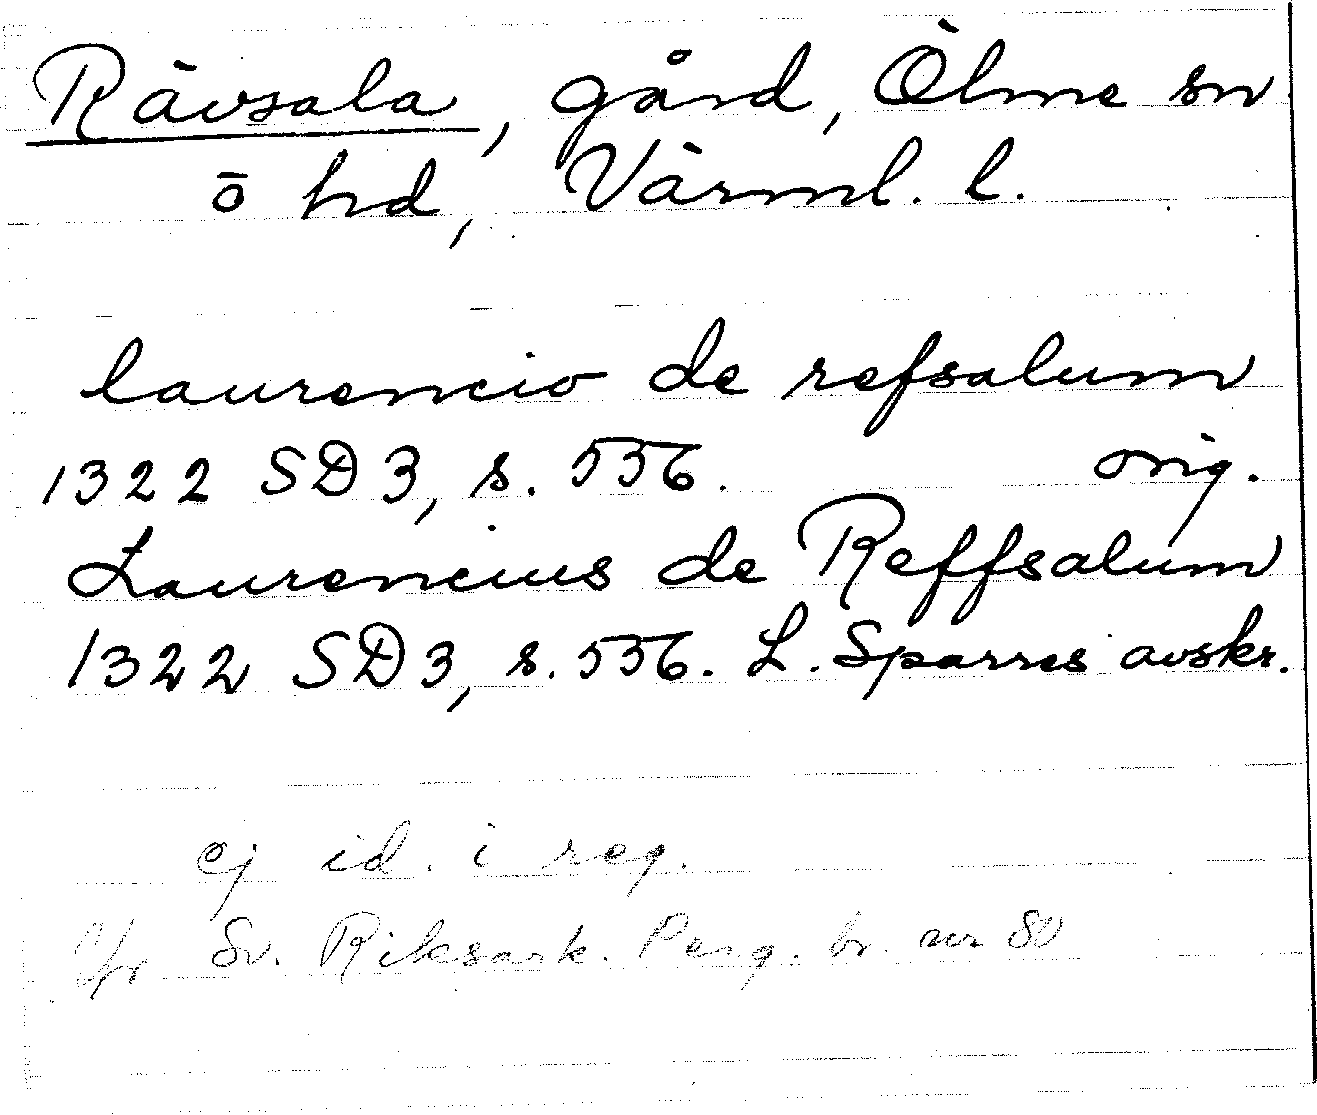 Rävsala, gård, Ölme sn
ö hd, Värml. l.
laurencio de refsalum
1322 SD 3, s. 536. orig.
Laurencius de Reffsalum
1322 SD 3, s. 536. L. Sparres avskr.
ej id. i reg.
Jfr Sv. Riksark. Perg. br. nr 80